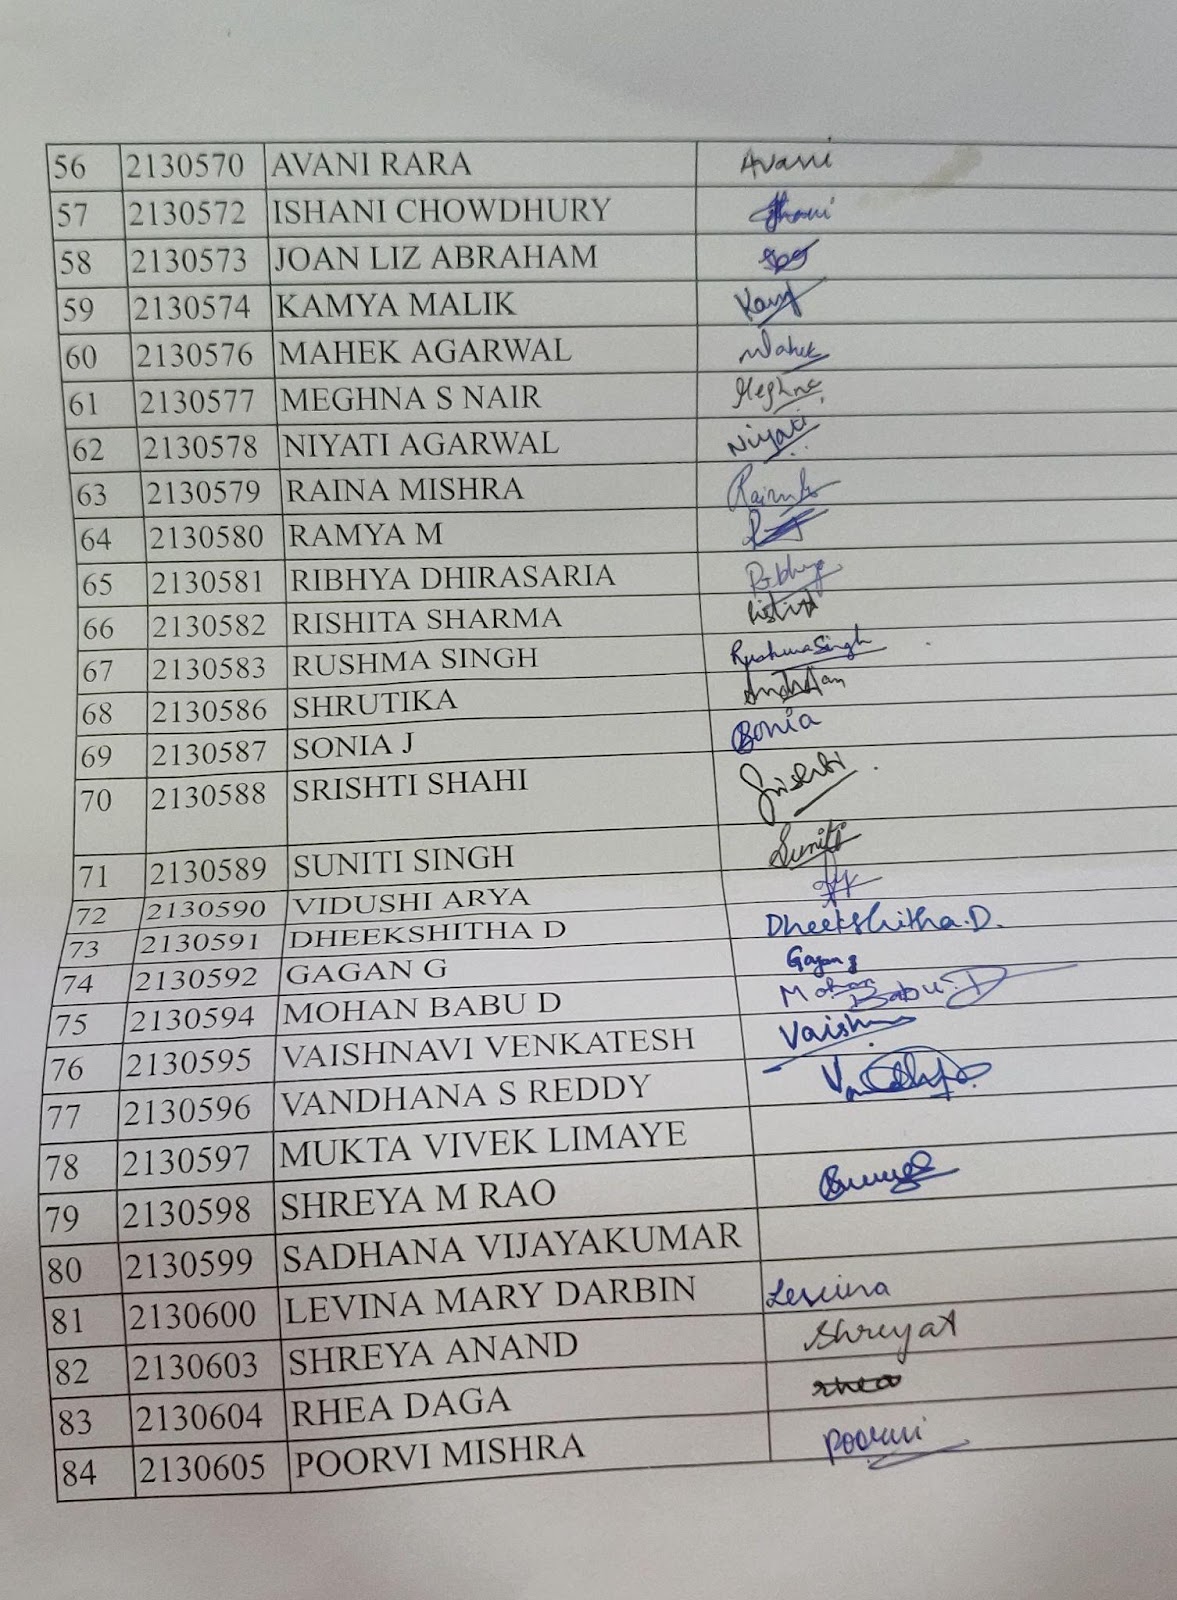 56 2130570 AVANI RARA Avani
57 2130572 ISHANI CHOWDHURY Ishani
58 2130573 JOAN LIZ ABRAHAM
59 2130574 KAMYA MALIK
60 2130576 MAHEK AGARWAL Mahek
61 2130577 MEGHNA S NAIR Meghna
62 2130578 NIYATI AGARWAL Niyati
63 2130579 RAINA MISHRA
64 2130580 RAMYA M
65 2130581 RIBHYA DHIRASARIA Ribhya
66 2130582 RISHITA SHARMA
67 2130583 RUSHMA SINGH Rushma Singh
68 2130586 SHRUTIKA
69 2130587 SONIA J Sonia
70 2130588 SRISHTI SHAHI Srishti
71 2130589 SUNITI SINGH Suniti
72 2130590 VIDUSHI ARYA
73 2130591 DHEEKSHITHA D Dheekshitha.D.
74 2130592 GAGAN G Gagan g
75 2130594 MOHAN BABU D Mohan Babu.D
76 2130595 VAISHNAVI VENKATESH
77 2130596 VANDHANA S REDDY
78 2130597 MUKTA VIVEK LIMAYE
79 2130598 SHREYA M RAO
80 2130599 SADHANA VIJAYAKUMAR
81 2130600 LEVINA MARY DARBIN Levina
82 2130603 SHREYA ANAND ShreyaA
83 2130604 RHEA DAGA rhea
84 2130605 POORVI MISHRA poorvi